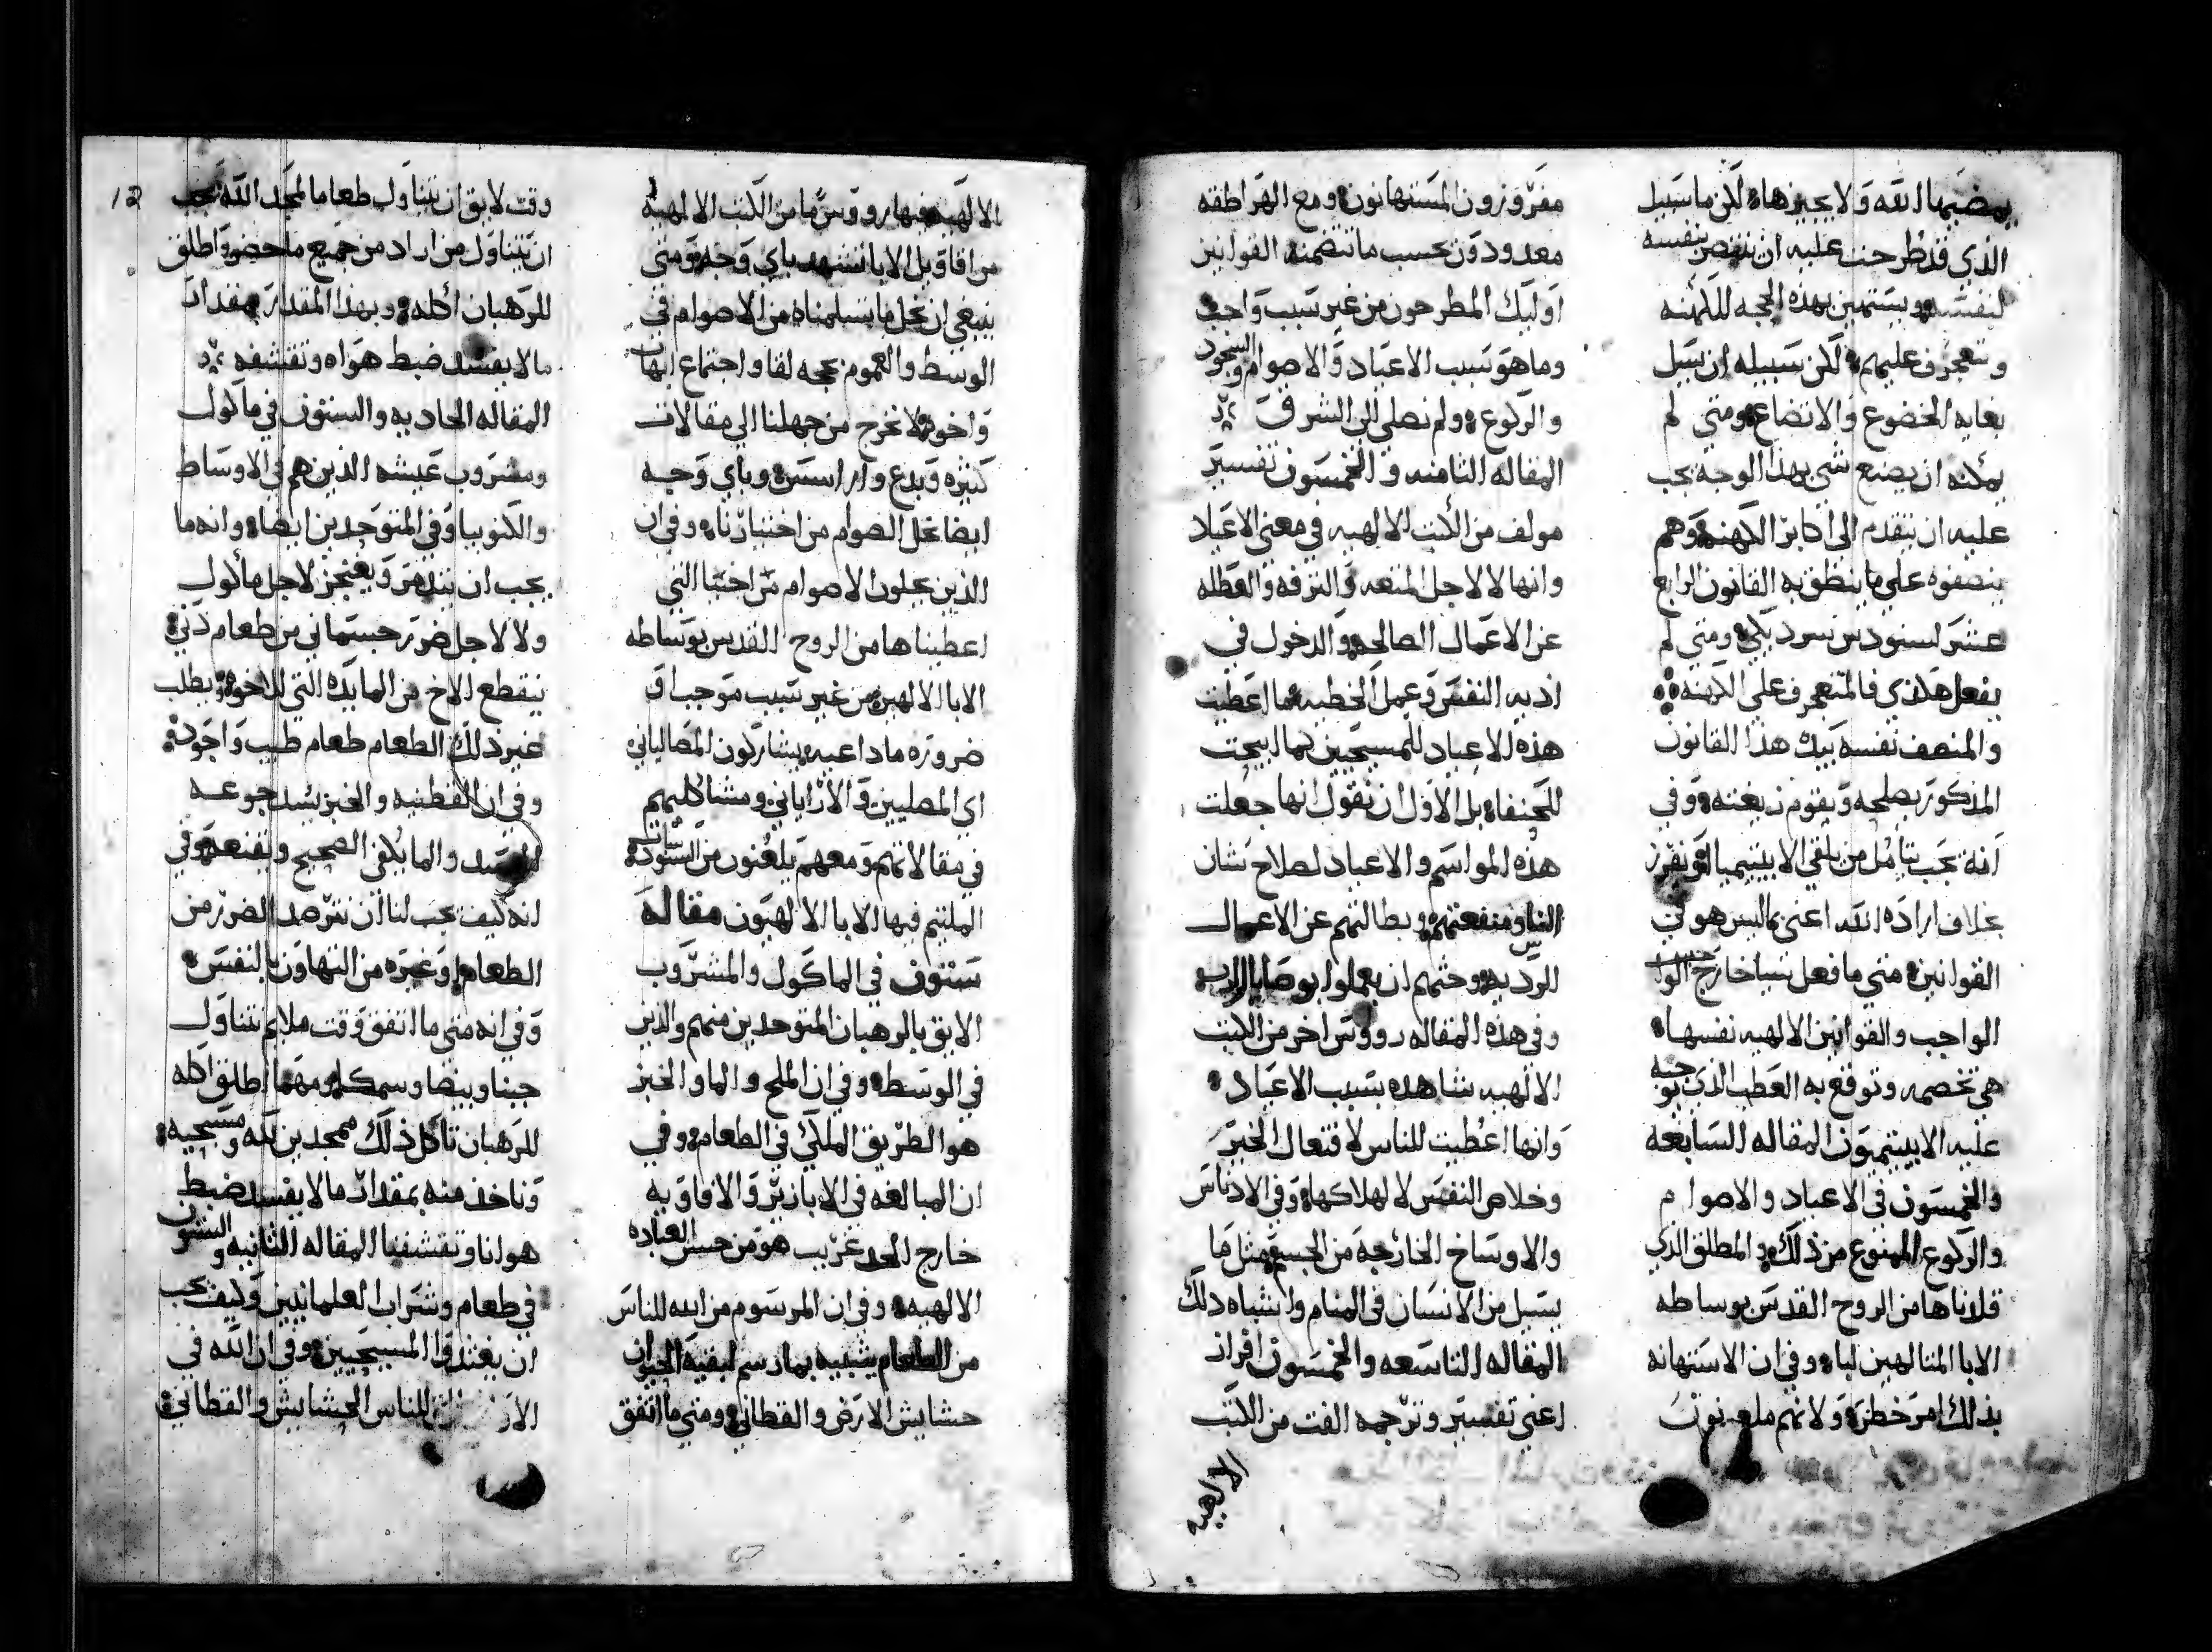 يمضيها الله ولا يجيزها لكن ما سبيل
الذي قد طرحت عليه ان ينتصر بنفسه
لنفسه ويستهين بهذه الحجه للكهنه
ويتعجرف عليهم لكن سبيله ان يسل
بغايه الخضوع والاتضاع ومتي لم
يمكنه ان يصنع شي بهذا الوجه يجب
عليه ان يتقدم الي اكابر الكهنه وهم
ينصفوه علي ما ينطق به القانون الرابع
عشر لسنودس سرديكي ومتي لم
يفعل هكذي فالمتعجرف علي الكهنه
والمنصف نفسه بيك هذا القانون
المذكور يصلحه ويقوم زيغته وفي
انه يجب تامل من يلقي الابيتيميا او يفرز
بخلاف ارادة الله اعني ما ليس هو في
القوانين متي ما فعل شيا خارج
الواجب والقوانين الالهيه نفسها
هي تخصمه وتوقع به العطب الذي توجبه
عليه الابيتيميون المقاله السابعه
والخمسون في الاعياد والاصوام
والركوع الممنوع من ذلك والمطلق الذي
قلدناها من الروح القدس بوساطه
الابا المتالهين لبا وفي ان الاستهانه
بذلك امر خطر ولانهم ملعونون
مفروزون المستهانون ومع الهراطقه
معدودون بحسب ما تتضمنه القوانين
اوليك المطرحون من غير سبب واجب
وما هو سبب الاعياد والاصوام والسجود
والركوع ولم نصلي الي الشرق
المقاله الثامنه والخمسون تفسير
مولف من الكتب الالهيه في معني الاعياد
وانها لا لاجل المتعه والترفه والعطله
عن الاعمال الصالحه والدخول في
اذيه النفس وعمل الخطيه ما اعطيت
هذه الاعياد للمسيحيين كما ابيحت
للحنفا بل الاولي ان نقول انها جعلت
هذه المواسم والاعياد لصلاح شان
الناس ومنفعتهم وبطالتهم عن الاعمال
الرديه وحثهم ان يعملوا بوصايا الرب
وفي هذه المقاله رووس اخر من الكتب
الالهيه شاهده بسبب الاعياد
وانها اعطيت للناس لافتعال الخير
وخلاص النفس لا لهلاكها وفي الادناس
والاوساخ الخارجه من الجسم مثل ما
يسيل من الانسان في المنام واشباه ذلك
المقاله التاسعه والخمسون افراز
اعني تفسير وترجمه الفت من الكتب
الالهيه
الالهيه فيها رووس ما من الكتب الالهيه
من اقاويل الابا تشهد باي وجه ومتي
ينبغي ان نحل ما تسلمناه من الاصوام في
الوسط والعموم بحجه لقا واجتماع ابهات
واخوه لا نخرج من جهلنا الي مقالات
كثيره وبدع واراسس وباي وجه
ايضا نحل الصوام من اختيارنا وفي ان
الذين يحلون الاصوام من اختيا التي
اعطيناها من الروح القدس بوساطه
الابا الالهين من غير سبب موجب او
ضروره ما داعيه يشاركون المصالياني
اي المصليين والارياني ومشاكليهم
في مقالاتهم ومعهم يلعنون من السنودسات
الملتيم فيها الابا الالهيون مقاله
ستون في الماكول والمشروب
الايق بالرهبان المتوحدين منهم والذين
في الوسط وفي ان الملح والما والخبز
هو الطريق الملكي في الطعام وفي
ان المبالغه في الابازير والافاويه
خارج الحد غريب هو من حسن العباده
الالهيه وفي ان المرسوم من الله للناس
من الطعام شبيه بما رسم لبقيه الحيوان
حشايش الارض والقطاني ومتي ما اتفق
12
وقت لايق ان نتناول طعاما لمجد الله يجب
ان يتناول من اراد من جميع ما حضر واطلق
للرهبان اكله وبهذا المقدار بمقدار
ما لا يفسد ضبط هواه وتقشفه
المقاله الحاديه والستون في ماكول
ومشروب عيشه الذين هم في الاوساط
والكنوبيا وفي المتوحدين ايضا وانه ما
يجب ان يتذمر ويعنجز لاجل ماكول
ولا لاجل ضرر جسماني من طعام دني
ينقطع الاخ من المايده التي للاخوه ويطلب
غير ذلك الطعام طعام طيب واجود
وفي ان القطنيه والخبز يسد جوعه
الجسد والما يكفي الصحيح ويقنعه وفي
انه كيف يجب لنا ان نترصد الضرر من
الطعام وغيره من التهاون بالنفس
وفي انه متي ما اتفق وقت ملايم نتناول
جبنا وبيضا وسمكا ومهما اطلق اكله
للرهبان ناكل ذلك ممجدين لله ومسبحيه
وناخذ منه بمقدار ما لا يفسد ضبط
هوانا وتقشفنا المقاله الثانيه والستون
في طعام وشراب العلمانيين وكيف يجب
ان يغتذوا المسيحيين وفي ان الله في
للناس الحشايش والقطاني